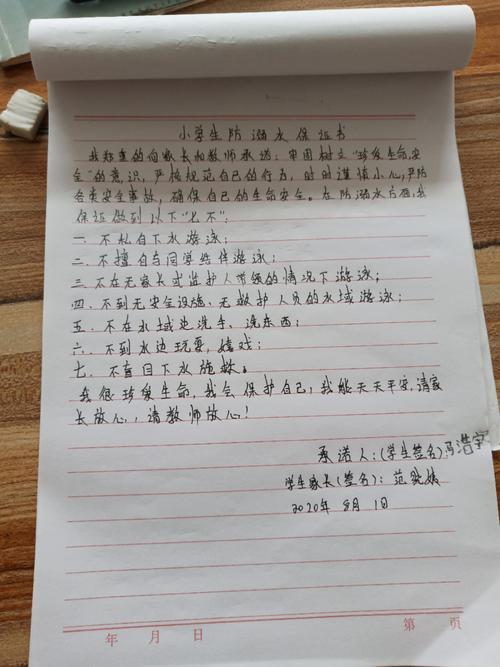 小学生防溺水保证书
我郑重的向家长和教师承诺：牢固树立"珍爱生命,安
全"的意识，严格规范自己的行为，时时谨慎小心,严防
各类安全事故，确保自己的生命安全。在防溺水方面,我
保证做到以下"七不"：
一、不私自下水游泳；
二、不擅自与同学结伴游泳；
三、不在无家长或监护人带领的情况下游泳；
四、不到无安全设施、无救护人员的水域游泳；
五、不在水域边洗手、洗东西；
六、不到水边玩耍、嬉戏；
七、不盲目下水施救。
我很珍爱生命，我会保护自己，我能天天平安,请家
长放心，请教师放心！
承诺人：(学生签名)冯浩宇
学生家长(签名)：范
2020年8月1日
年 月 日 第 页